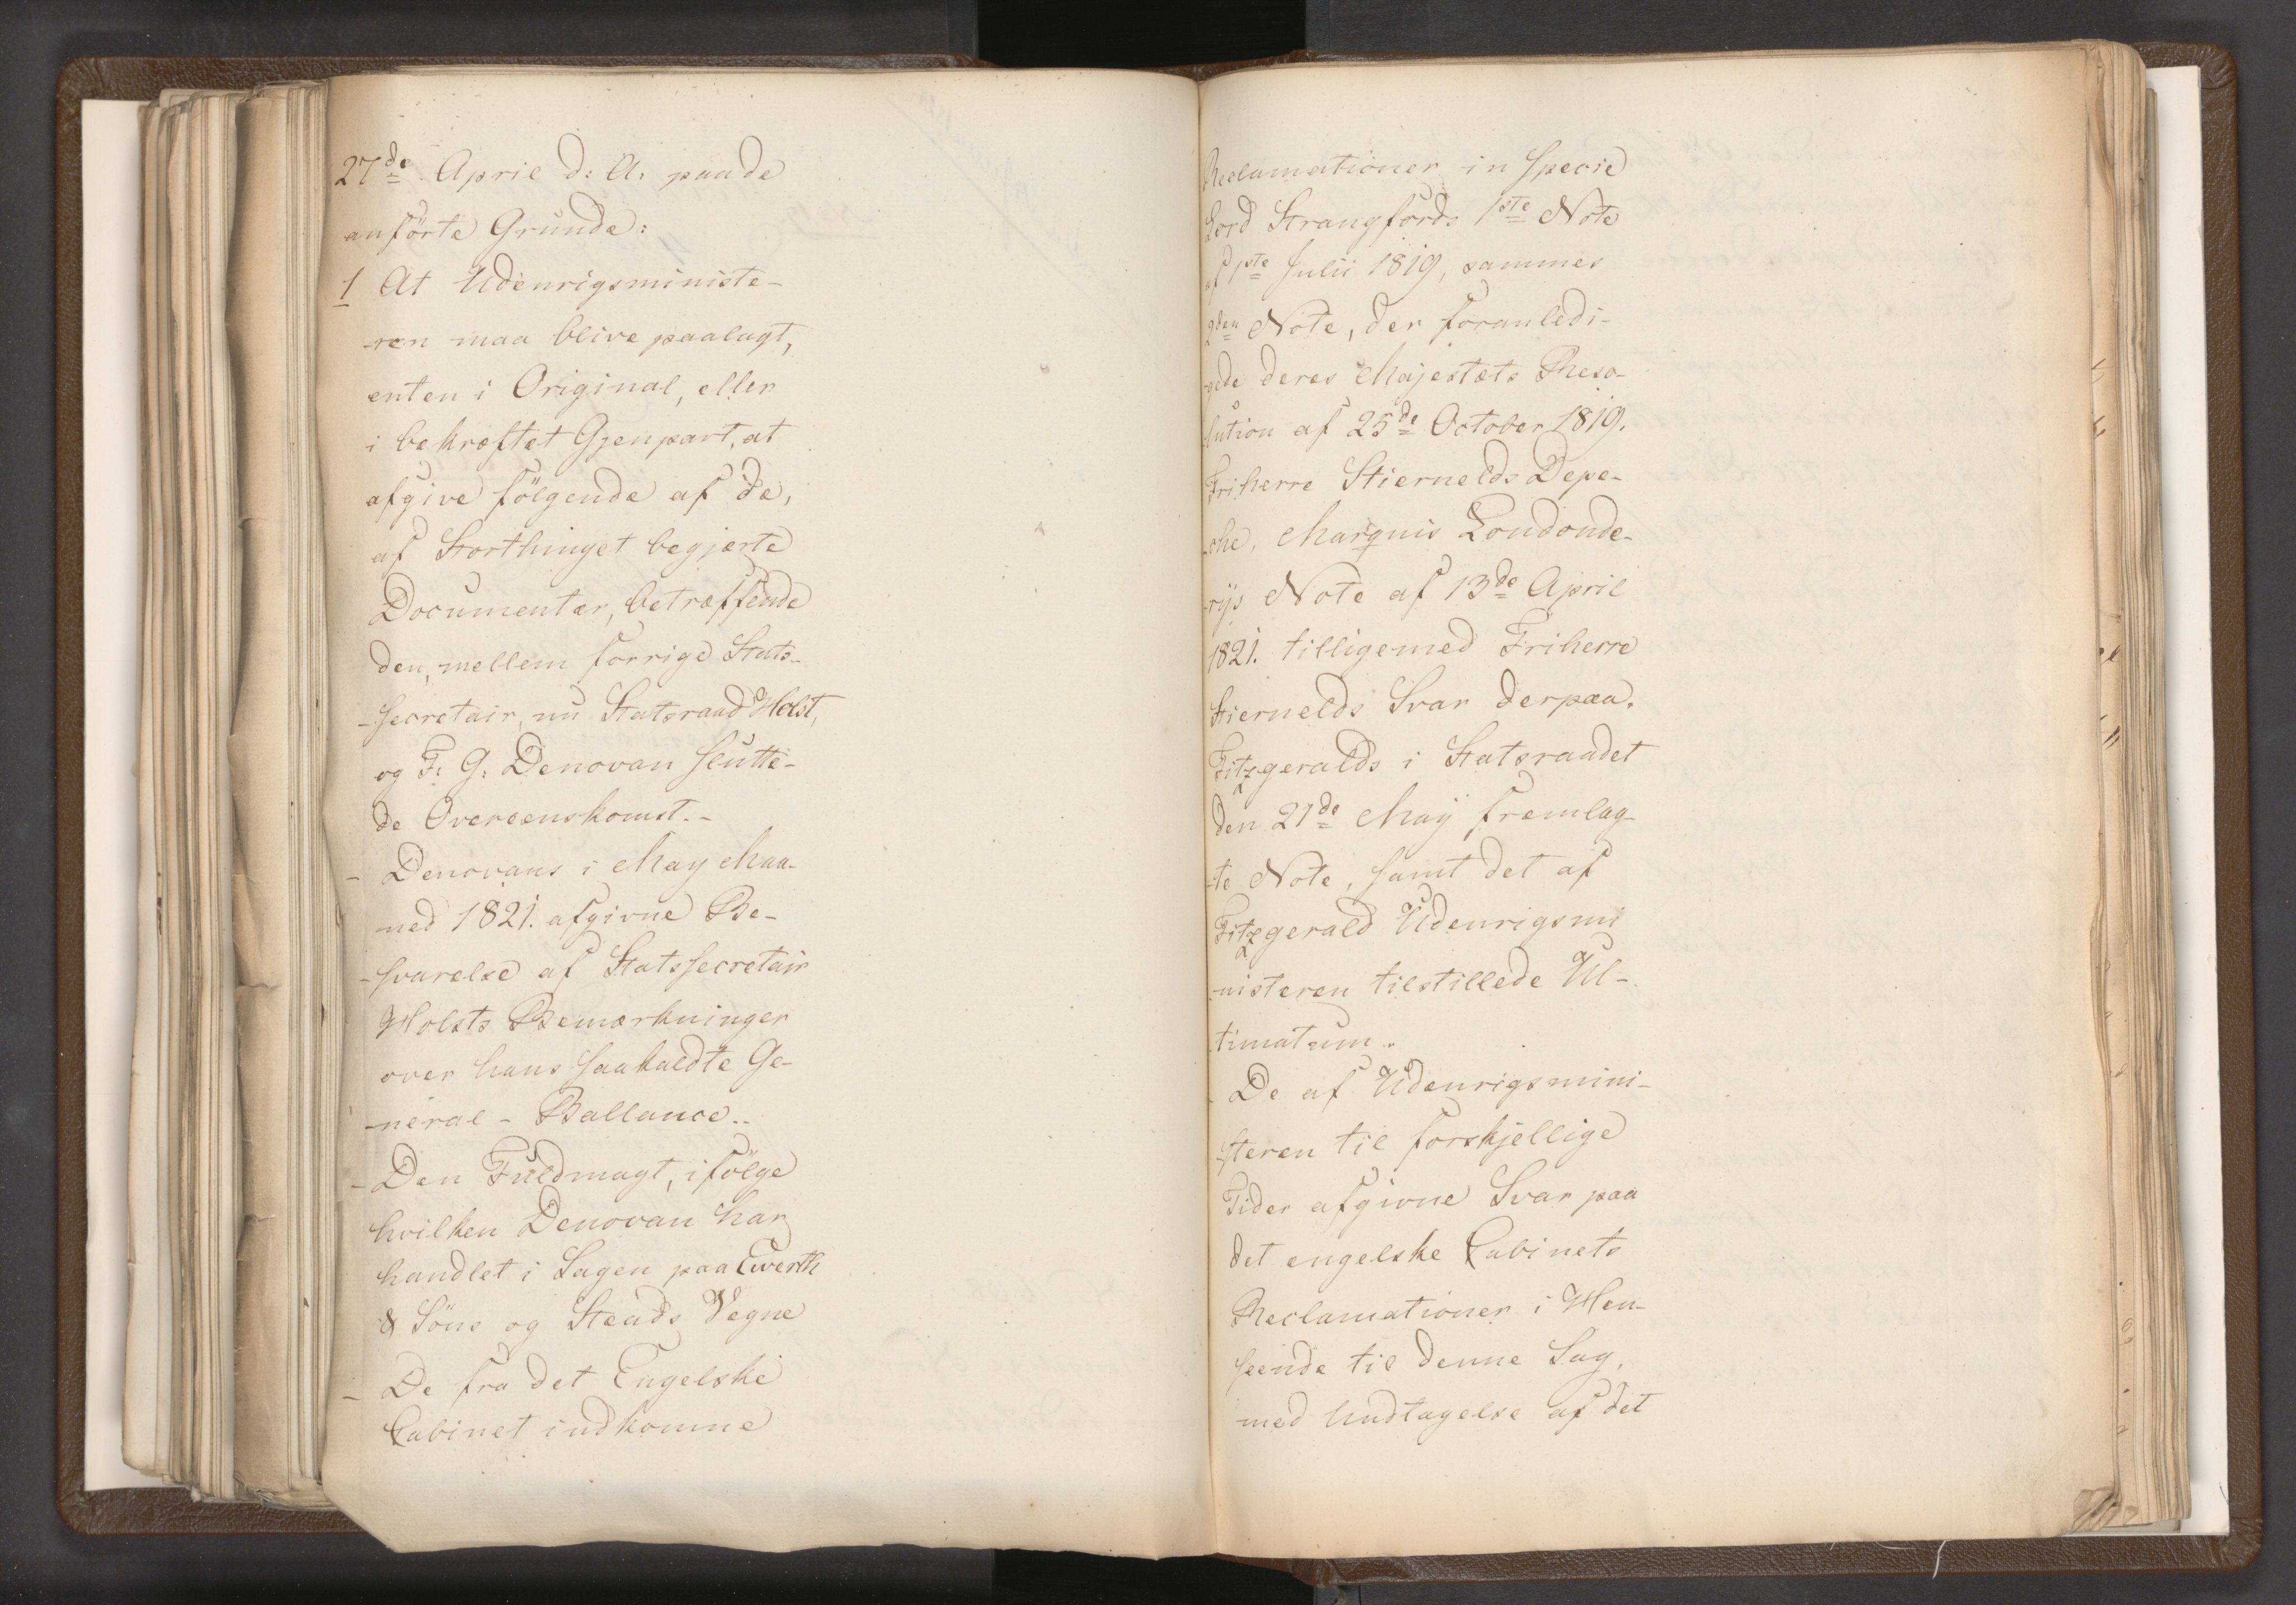 27de April d: A: paa de
anførte Grunde:
1 At Udenrigsministe-
-ren maa blive paalagt,
enten i Original, eller
i bekræftet Gjenpart, at
afgive følgende af de,
af Storthinget begjærte
Documenter, betræffende
den, mellem forrige Stats-
-secretair, nu Statsraad Holst,
og F: G: Denovan slutte-
de Overeenskomst.-
- Denovans i May Maa-
ned 1821. afgivne Be-
-svarelse af Statssecretair
Holsts Bemærkninger
over hans saakaldte Ge-
-neral-Ballance..
- Den Fuldmagt, ifølge
hvilken Denovan har
handlet i Sagen paa Ewerth
& Söns og Steads Vegne
- De fra det Engelske
Cabinet indkomne
Reclamationer in specie
Lord Strangfords 1ste Note
af 1ste Julii 1819, sammes
2den Note, der foranledi-
-gede deres Majestæts Reso-
lution af 25de October 1819.
Friherre Stiernelds Depe-
-che, Marquis Londonde-
-rys Note af 13de April
1821. tilligemed Friherre
Stiernelds Svar derpaa.
Fitzgeralds i Statsraadet
den 21de May fremlag-
-te Note, samt det af
Fitzgerald Udenrigsmi
-nisteren tilstillede Ul-
timatum.
- De af Udenrigsmini-
-steren til forskjellige
Tider afgivne Svar paa
det engelske Cabinets
Reclamationer i Hen-
seende til denne Sag,
med Undtagelse af det